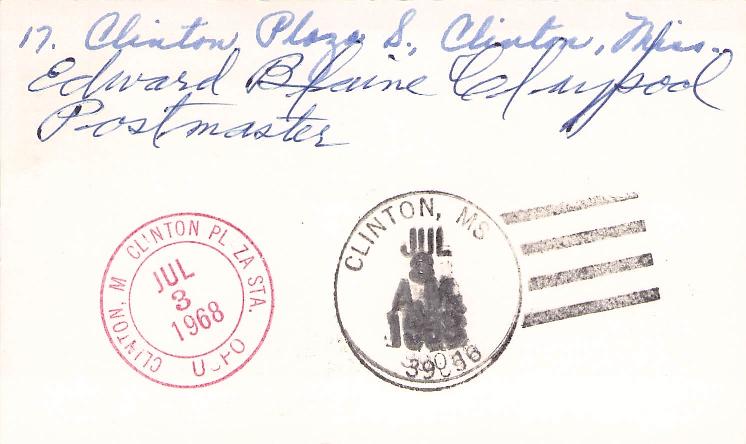 17. Clinton Plaza S., Clinton, Miss.
Edward Blaine Claypool
Postmaster
CLINTON, M CLINTON PL ZA STA.
JUL
3
1968
USPO
CLINTON, MS
JUL
3
AM